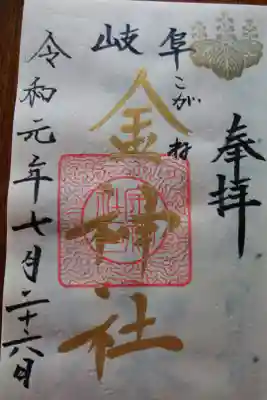 奉拝
岐阜
こがね
金神社
令和元年七月二十六日